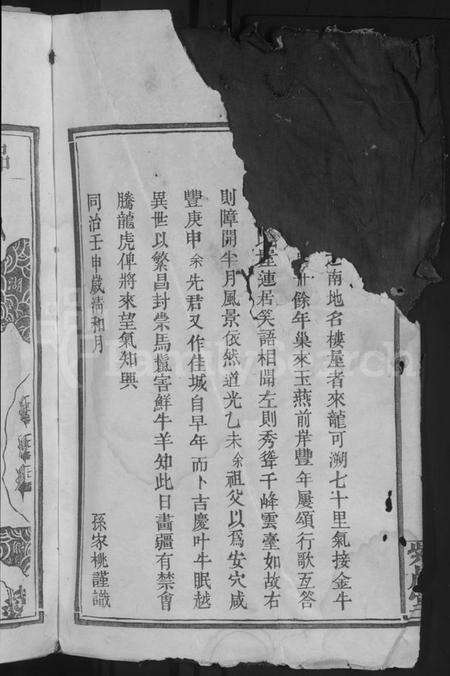 南地名樓屋者來龍可溯七十里氣接金牛
餘年巢來玉燕前岸豐年屢頌行歌互答
連居笑語相聞左則秀聳千峰雲臺如故右
則障開半月風景依然道光乙未余祖父以為安穴咸
豐庚申余先君又作佳城自早年而卜吉慶叶牛眠越
異世以繁昌封崇馬鬣害鮮牛羊知此日畫疆有禁會
騰龍虎俾將來望氣知興
同治壬申歲清和月
孫家桃謹識
FamilySearch